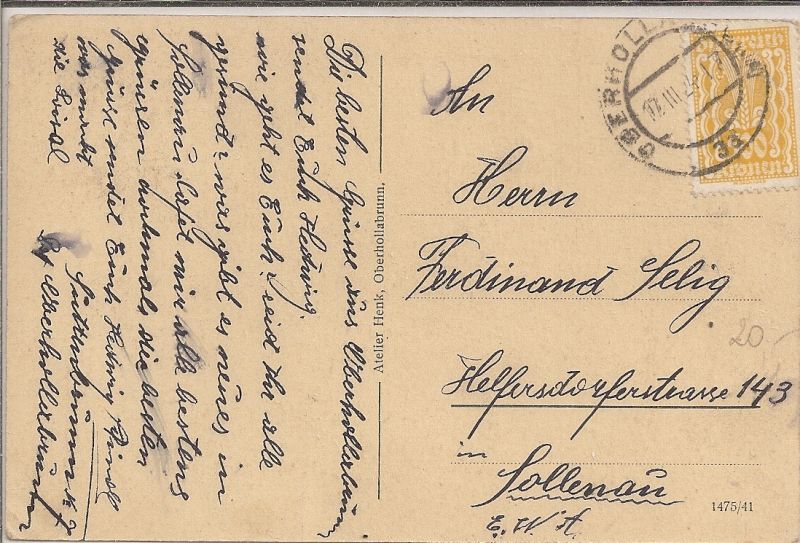 Die besten Grüsse aus Oberhollabrunn
sendet Euch Hedwig.
wie geht es Euch? seid Ihr alle
gesund? was gibt es neues in
Sollenau laßt mir alle bestens
grüssen nochmals die besten
Grüsse sendet Euch Hedwig
was macht
die
Oberhollabrunn
Atelier Henk, Oberhollabrunn.
OBERHOLLABRUNN
17. III.
An
Herrn
Ferdinand Selig
Helfersdorferstrasse 143
in
Sollenau
E. W. A.
20.-
1475/41